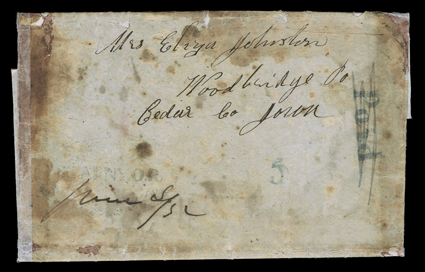 Mrs Eliza Johnston
Woodbridge Po
Cedar Co Iowa
5
June 4/52